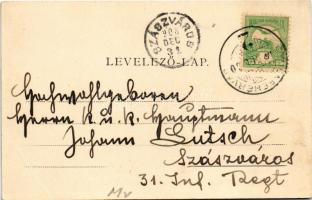 SZÁSZVÁROS
DEC
31
LEVELEZŐ-LAP.
Hochwohlgeboren
Herrn k. u. k. Hauptmann
Johann Lutsch
Szászváros
31. Inf. Regt